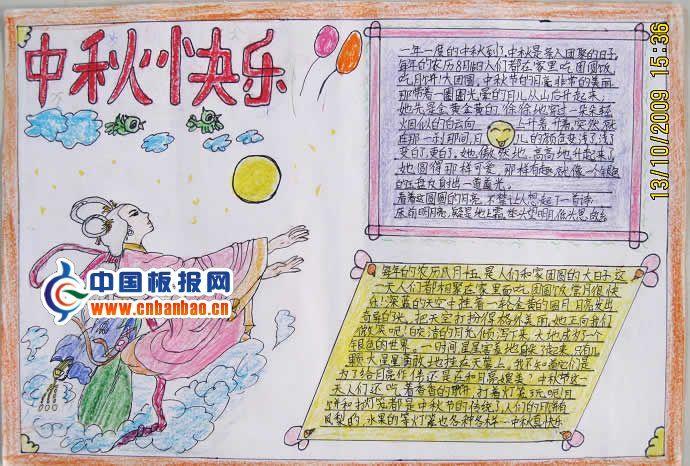 中秋快乐
一年一度的中秋到了,中秋是家人团聚的日子,
每年的农历8月15日人们都在家里吃团圆饭
吃月饼大团圆,中秋节的月亮非常的美丽
那带着一圈圈光晕的月儿从山后升起来,
她先是金黄金黄的徐徐地穿过一朵朵轻
烟似的白云向上升着升着,突然就
在那一刹那间,月儿的颜色变浅了,浅了
变白了,更白了。她傲然地,高高地升起来了
她圆得那样可爱,那样有趣,就像一个银色
的玉盘发射出一道蓝光。
看着这圆圆的月亮,不禁让人想起了一首诗
床前明月光,疑是地上霜,举头望明月,低头思故乡
每年的农历八月十五,是人们和家团圆的大日子,这
一天人们都相聚在家里面吃团圆饭,赏月很快
在深蓝的天空中挂着一轮金黄的圆月,月亮发出
把天空打扮得格外美丽,她正向我们
微笑呢!皎洁的月光倾泻下来,大地成为了一个
银色的世界。一时间,星星害羞地躲了起来,只有几
颗大星星勇敢地挂在天幕上,我不知道它们是
为了给月亮作伴,还是在和月亮媲美!中秋节这一
天人们还吃着香香的月饼,打着灯笼玩呢!月
饼和灯笼都是中秋节的传统了,人们的月饼有
凤梨的,水果的等,灯笼也各种各样
中国板报网
www.cnbanbao.cn
13/10/2009 15:36